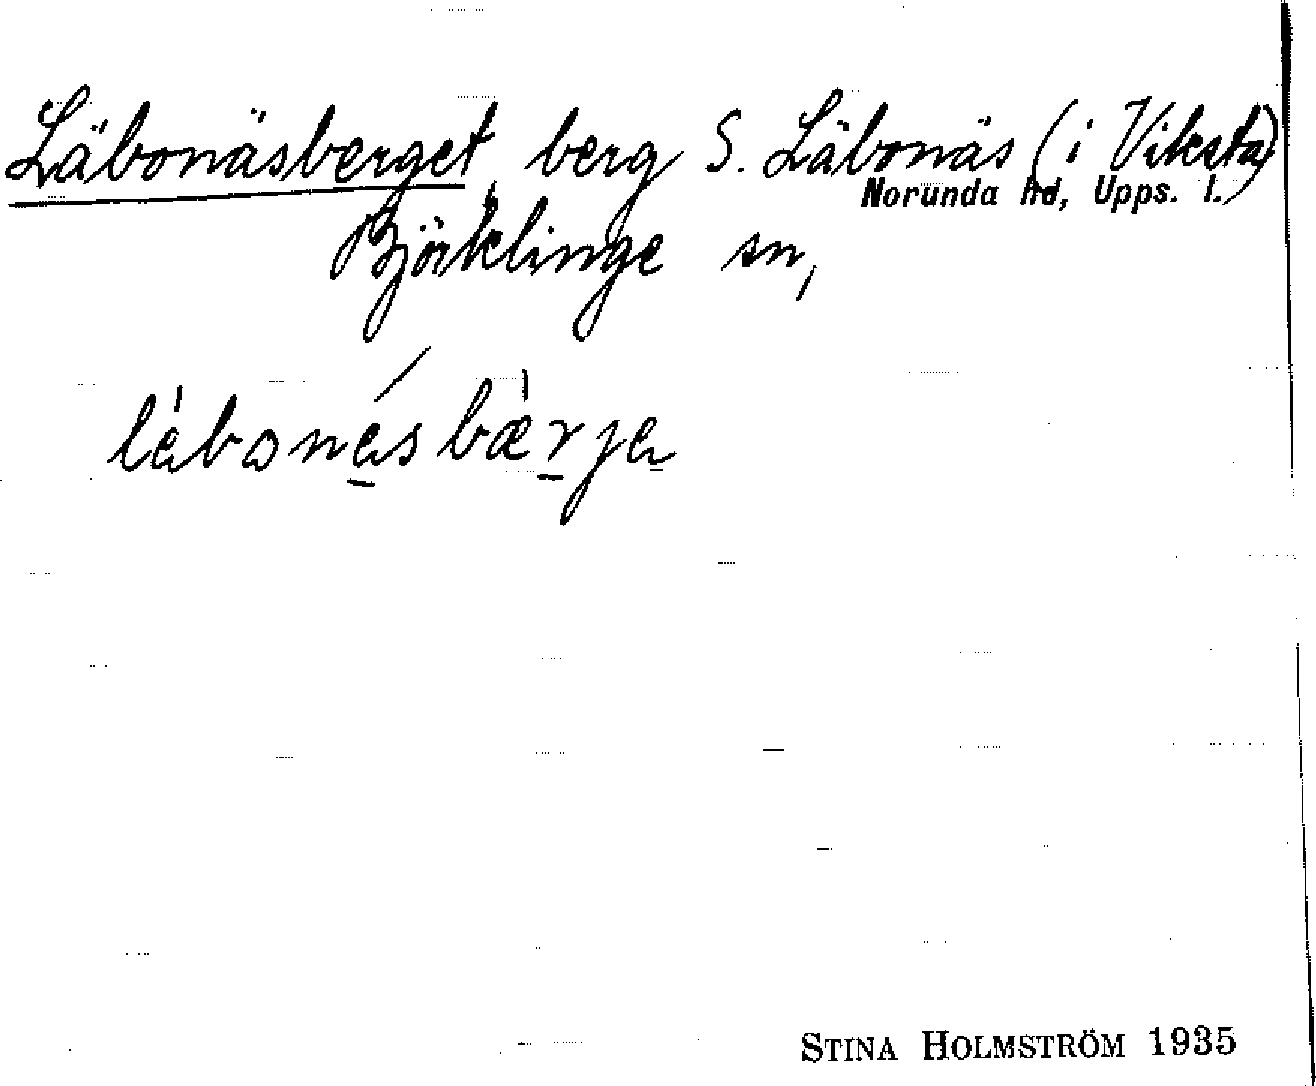 Läbonäsberget, berg S. Läbonäs (i Viksta)
Norunda hd, Upps. l.
Björklinge sn,
STINA HOLMSTRÖM 1935